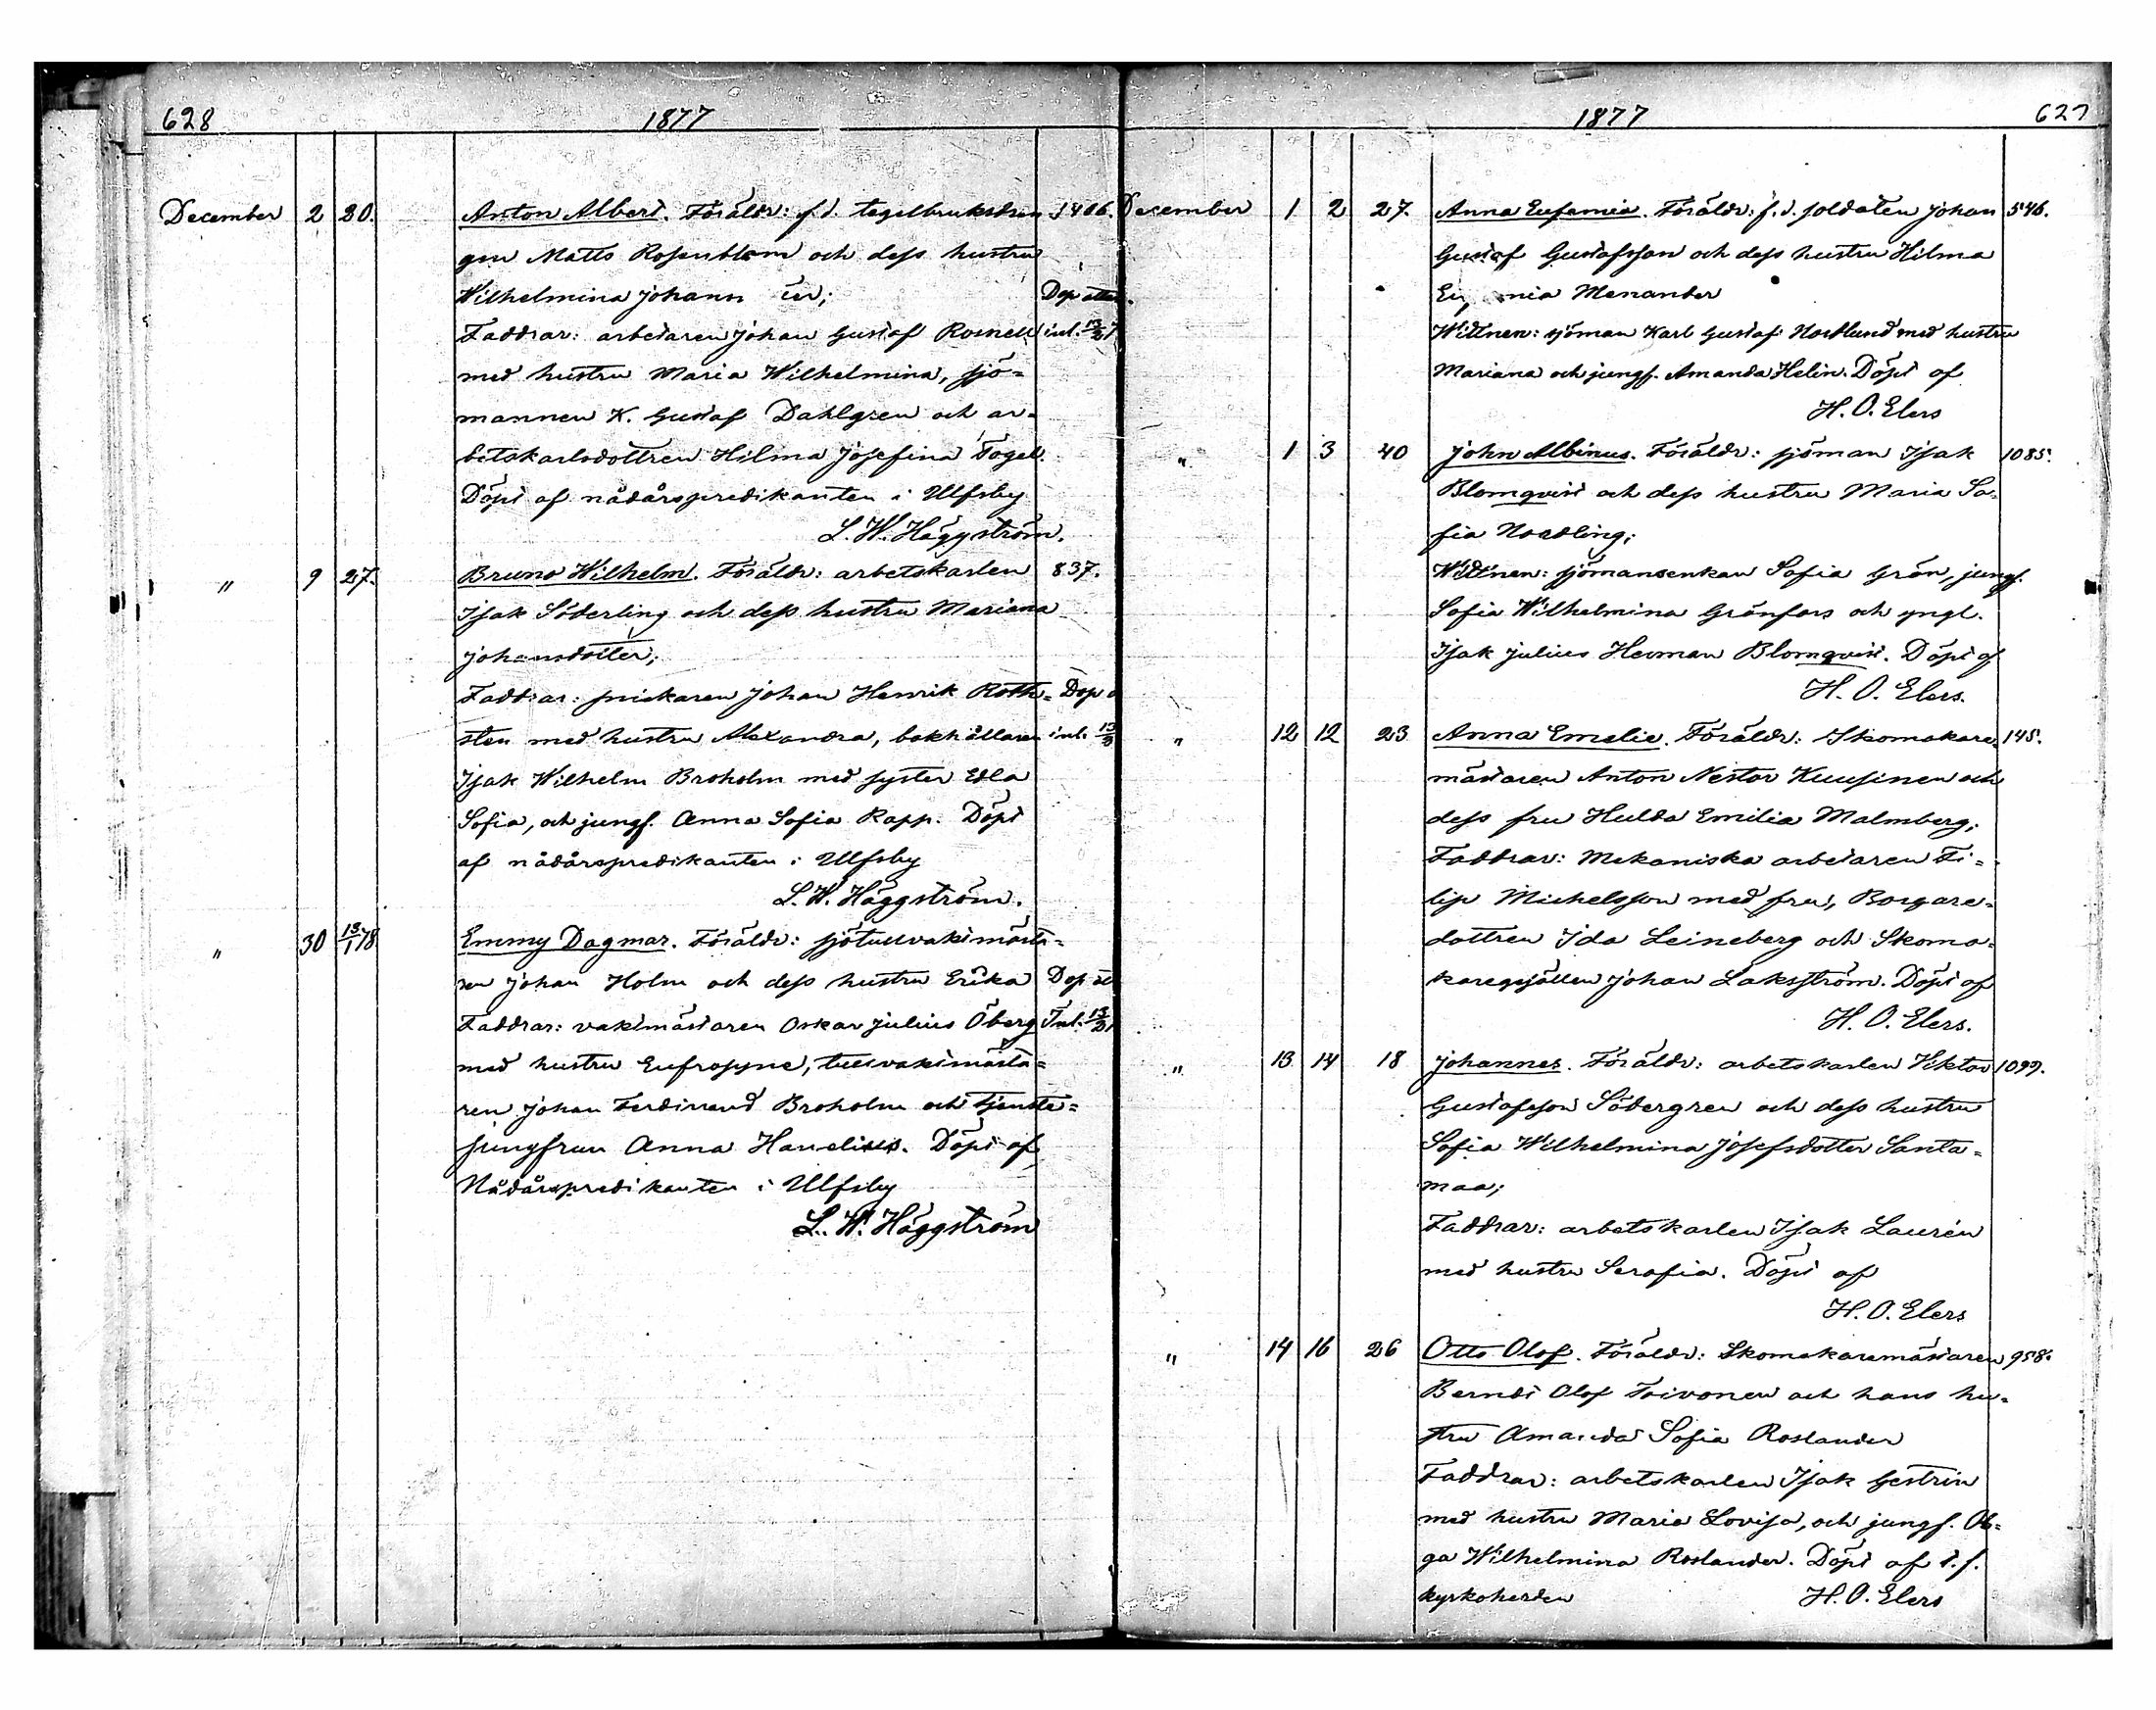 628 1877
December 2 20. Anton Albert. Föräldr: f.d. tegelbruksdren 1406.
gen Matts Rosenblom och dess hustru
Wilhelmina Johann
Faddrar: arbetaren Johan Gustaf Rosnell inl. 13/2
med hustru Maria Wilhelmina, sjö=
mannen K. Gustaf Dahlgren och ar=
betskarlsdottren Hilma Josefina Fogel.
Döpt af nådårspredikanten i Ulfsby
L. W. Häggström.
" 9 27. Bruno Wilhelm. Föräldr: arbetskarlen 837.
Isak Söderling och dess hustru Mariana
Johansdotter;
Faddrar: snickaren Johan Henrik Roth= Dop
sten med hustru Alexandra, bokhållaren inl. 13
Isak Wilhelm Broholm med syster Edla
Sofia, och jungf. Anna Sofia Rapp. Döpt
af nådårspredikanten i Ulfsby
L. W. Häggström.
" 30 13/1 78 Emmy Dagmar. Föräldr: sjötullvaktmästa=
ren Johan Holm och dess hustru Erika Dop
Faddrar: vaktmästaren Oskar Julius Öberg Inl. 13/2
med hustru Eufrosyne, tullvaktmästa=
ren Johan Ferdinand Broholm och tjenste=
jungfrun Anna Handelius. Döpt af
Nådårspredikanten i Ulfsby
L. W. Häggström
1877 627
December 1 2 27. Anna Eufemia. Föräldr: f.d. soldaten Johan 546.
Gustaf Gustafsson och dess hustru Hilma
Menander
Wittnen: sjöman Karl Gustaf Nordlund med hustru
Mariana och jungf. Amanda Helin. Döpt af
H. O. Elers
" 1 3 40 John Albinus. Föräldr: sjöman Isak 1085.
Blomqvist och dess hustru Maria So=
fia Nordling;
Wittnen: sjömansenkan Sofia Grön, jungf.
Sofia Wilhelmina Grönfors och yngl.
Isak Julius Herman Blomqvist. Döpt af
H. O. Elers.
" 12 12 23 Anna Emelie. Föräldr: Skomakare= 145.
mästaren Anton Nestor Kuusinen och
dess fru Hulda Emilia Malmberg;
Faddrar: Mekaniska arbetaren Fi=
lip Michelsson med fru, Borgare=
dottren Ida Leineberg och Skoma=
karegesällen Johan Laksström. Döpt af
H. O. Elers.
" 13 14 18 Johannes. Föräldr: arbetskarlen Viktor 1099.
Gustafsson Södergren och dess hustru
Sofia Wilhelmina Josefsdotter Santa=
maa;
Faddrar: arbetskarlen Isak Laurén
med hustru Serafia. Döpt af
H. O. Elers
" 14 16 26 Otto Olof. Föräldr: Skomakaremästaren 958.
Berndt Olof Toivonen och hans hu=
stru Amanda Sofia Roslander
Faddrar: arbetskarlen Isak Gestrin
med hustru Maria Lovisa, och jungf. Ol=
ga Wilhelmina Roslander. Döpt af t.f.
kyrkoherden H. O. Elers